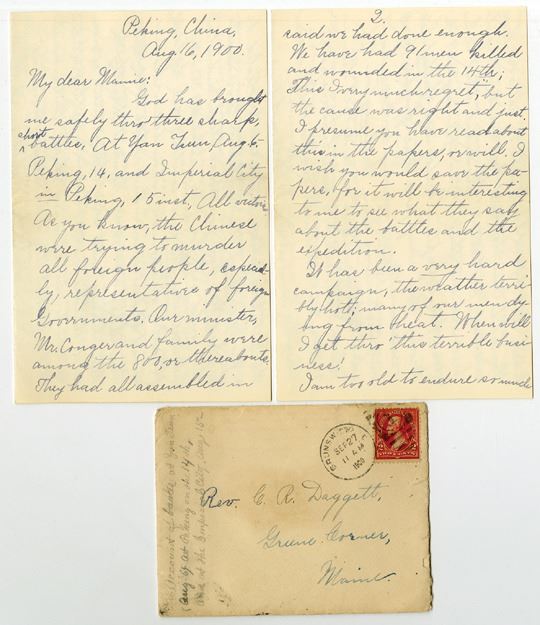 Peking, China,
Aug. 16, 1900.
My dear Mamie:
God has brought
me safely thro' three sharp,
short battles. At Yan Tsun, Aug. 6.
Peking, 14, and Imperial City
in Peking, 15 inst. All victories
As you know, the Chinese
were trying to murder
all foreign people, especial-
ly, representatives of foreign
Governments. Our minister,
Mr. Conger and family were
among the 800, or thereabouts.
They had all assembled in
2.
said we had done enough.
We have had 91 men killed
and wounded in the 14th;
This I very much regret, but
the cause was right and just.
I presume you have read about
this in the papers, or will. I
wish you would save the pa-
pers, for it will be interesting
to me to see what they say
about the battles and the
expedition.
It has been a very hard
campaign, the weather terri-
bly hot; many of our men dy-
ing from heat. When will
I get thro' this terrible busi-
ness!
I am too old to endure so much
BRUNSWICK
SEP 27
11 AM
1900
Rev. C. R. Daggett,
Greene Corner,
Maine.
account of battle at Yan Tsun
Aug 6th At Peking on the 14th,
and at the Imperial City Aug 15th